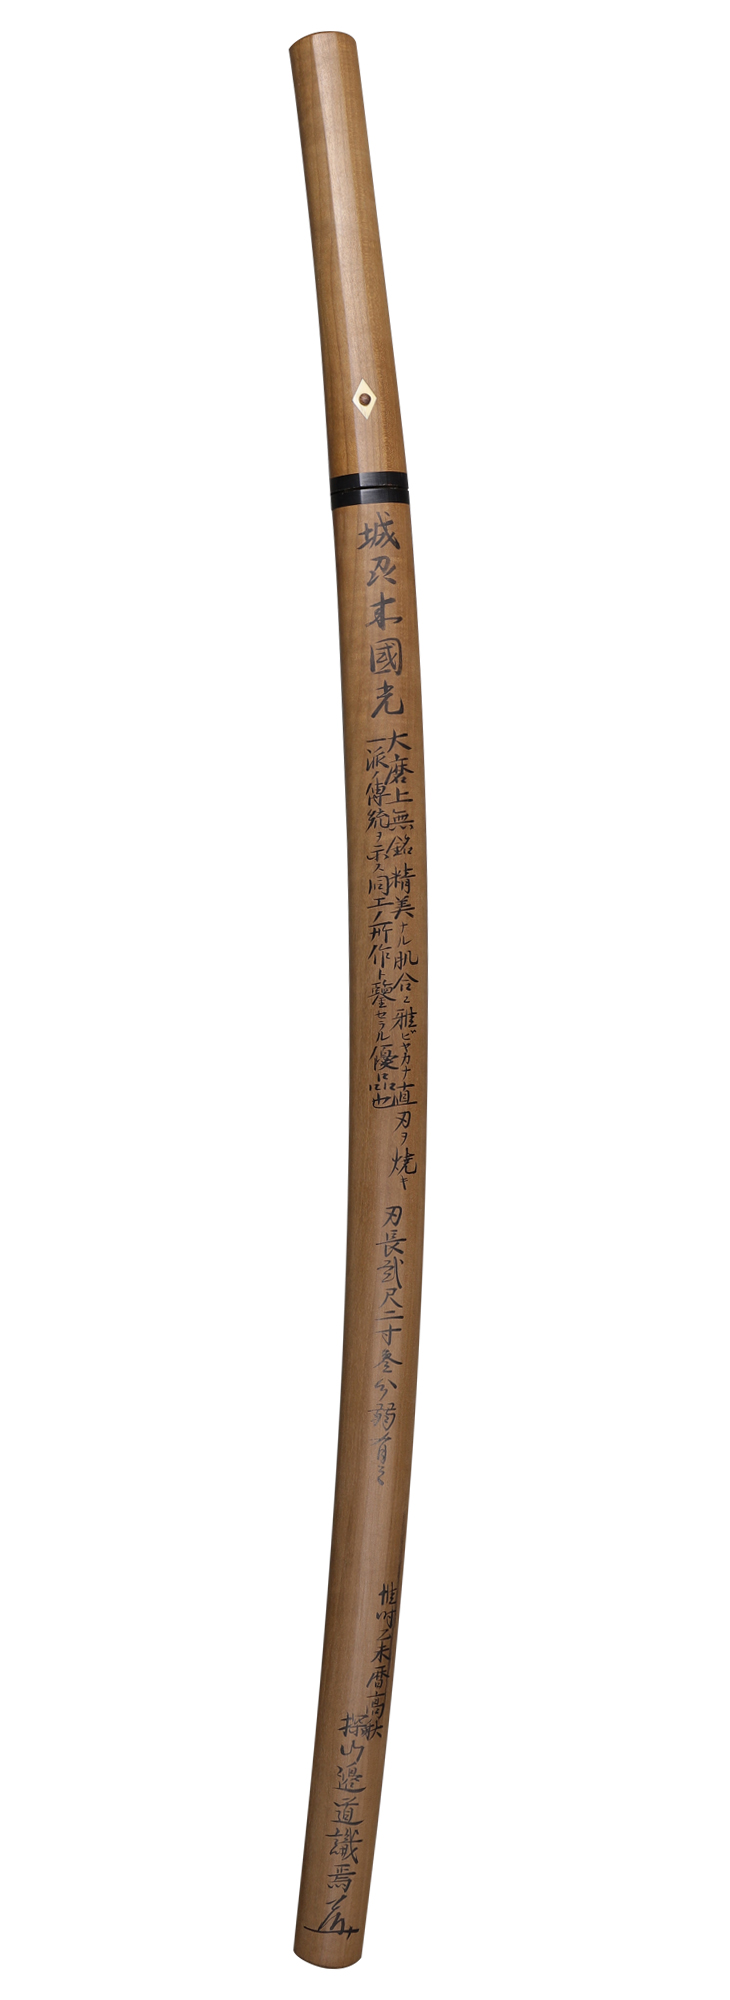 城刕来國光
大磨上無銘精美ナル肌合ニ雅ビヤカナ直刃ヲ焼キ
一派ノ傳統ヲ示ス同工ノ所作ト鑒セラル優品也
刃長貳尺二寸叁分弱有之
惟時乙未暦高秋
探山邉道識焉